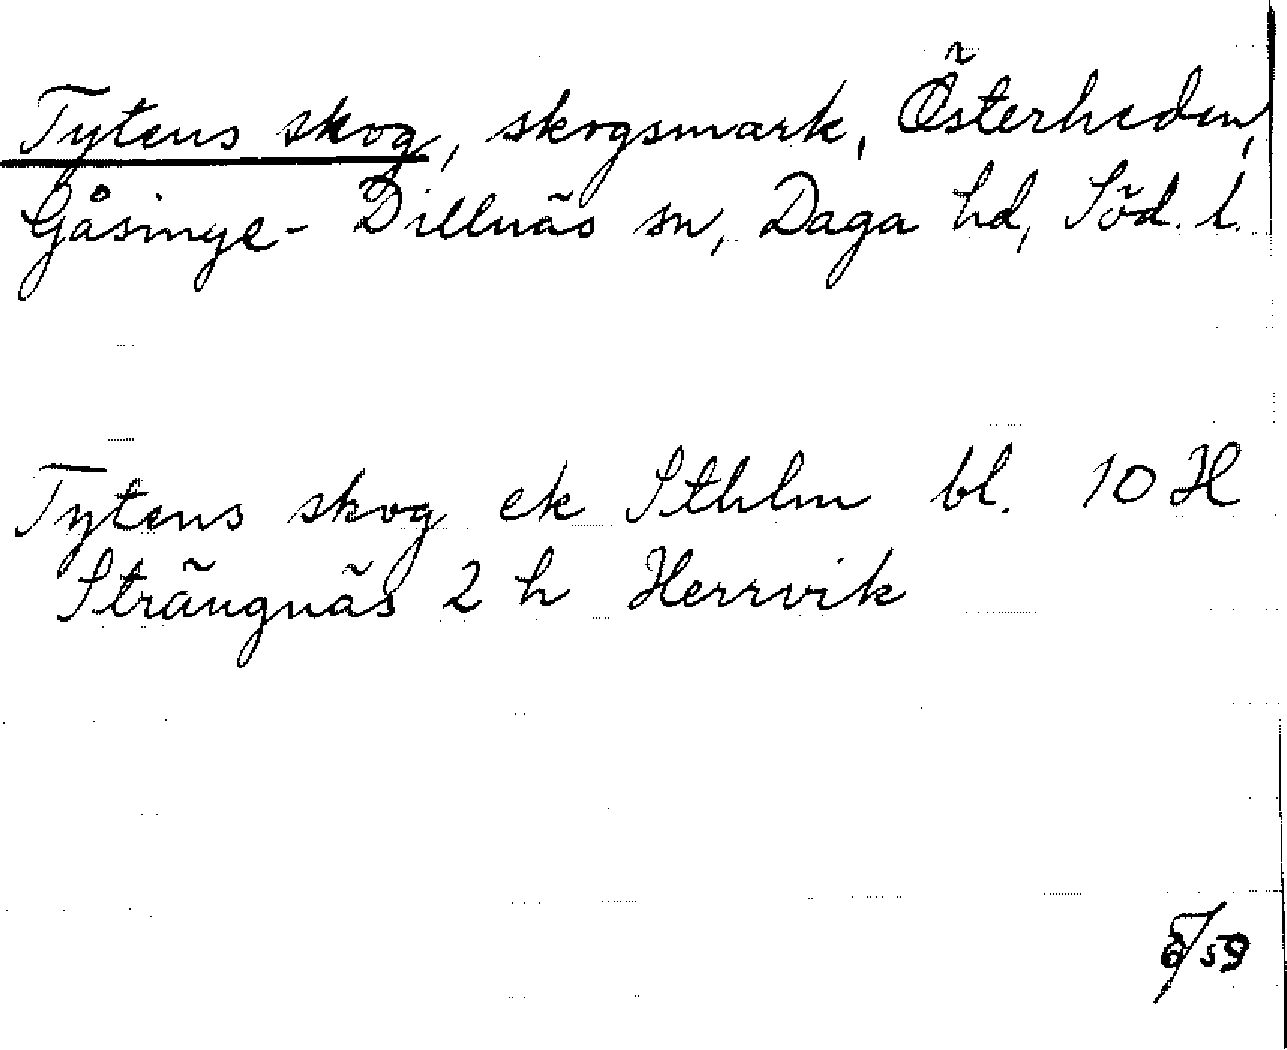 Tytens skog, skogsmark, Österheden,
Gåsinge-Dillnäs sn, Daga hd, Söd. l.
Tytens skog ek Sthlm bl. 10 H
Strängnäs 2 h Herrvik
6/59